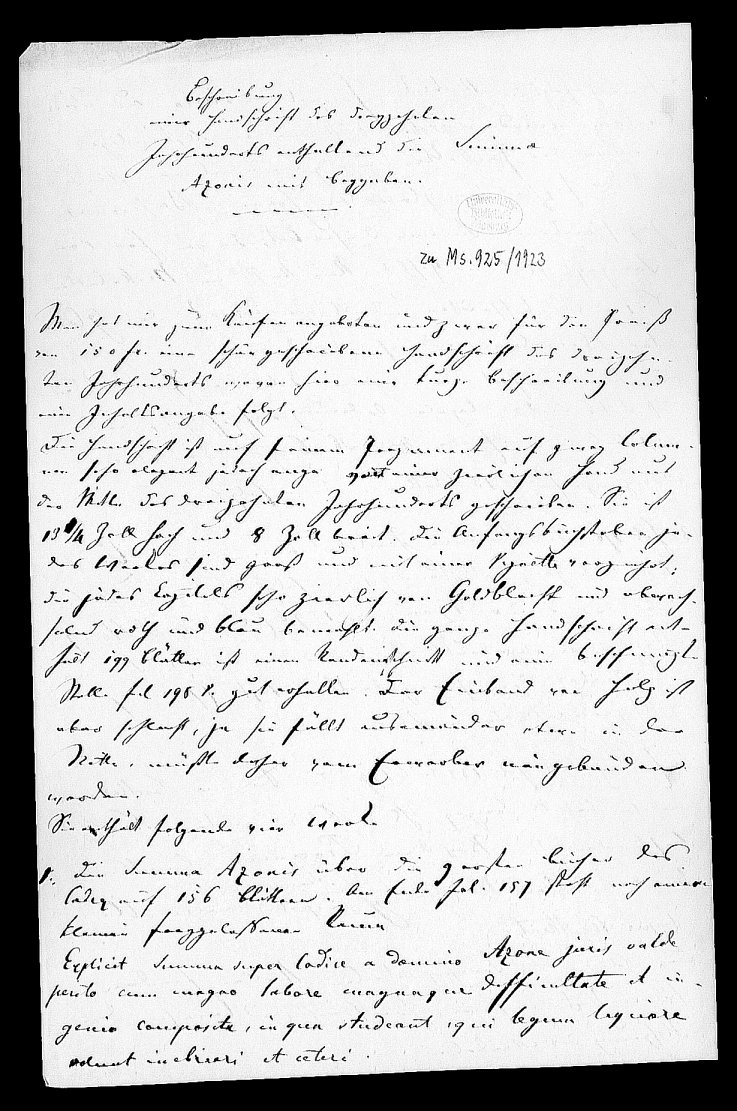 Beschreibung
einer Handschrift des dreyzehnten
Jahrhunderts enthaltend die Summa
Azonis mit Beygaben.
zu Ms. 925/1923
Man hat mir zum Kaufen angeboten und zwar für den Preiß
von 150 fr. eine schön geschriebene Handschrift des dreizehn-
ten Jahrhunderts wovon hier eine kurze Beschreibung und
eine Inhaltsangabe folgt.
Die Handschrift ist auf feinem Pergament auf zwey Colum-
nen sehr elegant jedoch enge von einer zierlichen Hand aus
der Mitte des dreizehnten Jahrhunderts geschrieben. Sie ist
13 1/4 Zoll hoch und 8 Zoll breit. Die Anfangsbuchstaben je-
des Werkes sind groß und mit einer Vignette verziehrt;
die jedes Capitels sehr zierlich von Goldblech und abwech-
selnd roth und blau bemahlt. Die ganze Handschrift ent-
hält 199 Blätter ist einen Randausschnitt und eine beschmuzte
Stelle fol 198 v. gut erhalten. Der Einband von Holz ist
aber schlecht, ja sie fällt auseinander etwa in der
Mitte, müßte daher vom Erwerber neu gebunden
werden.
Sie enthält folgende vier Werke
1. Die Summa Azonis über die ersten Bücher des
Codex auf 156 Blättern. Am Ende Fol. 157 steht nach einem
kleinen freygelassenen Raum
Explicit Summa super Codice a domino Azone juris valde
perito cum magno labore magnaque difficultate et in-
genio composita, in qua studeant, qui legum liquore
volunt inebriari et ceteri.